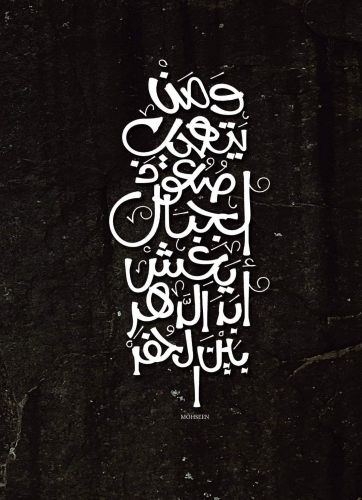 ومن
يتهيب
صُعود
الجبال
يعش
أبد الدَّهر
بين الحفر
MOHSEEN